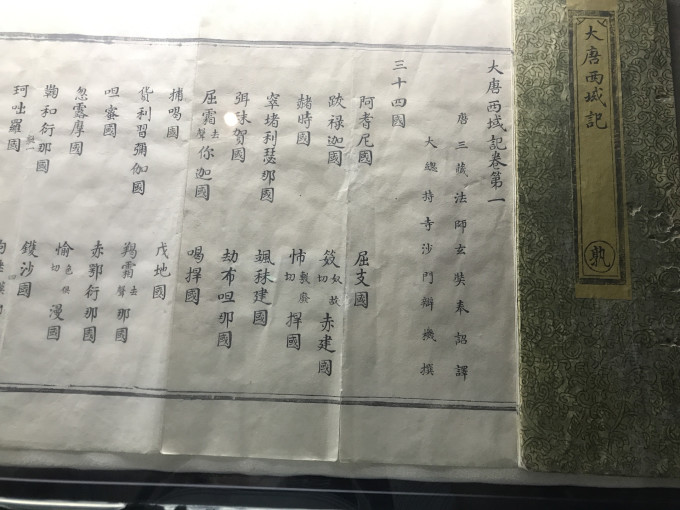 大唐西域記
執
大唐西域記卷第一
唐三藏法師玄奘奉詔譯
大總持寺沙門辯機撰
三十四國
阿耆尼國 屈支國
跋祿迦國 笯奴故切赤建國
赭時國 怖敷廢切捍國
窣堵利瑟那國 颯秣建國
弭秣賀國 劫布呾那國
屈霜去聲你迦國 喝捍國
捕喝國 戊地國
貨利習彌伽國 羯霜去聲那國
呾蜜國 赤鄂衍那國
忽露摩國 愉色俱切漫國
鞠和衍那國 鑊沙國
珂咄羅國